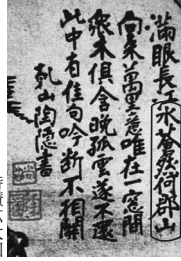 滿眼長江水蒼然何郡山
向来萬里意唯在一窓間
衆木俱含晩孤雲遂不還
此中有佳句吟断不相関
乾山陶隠書